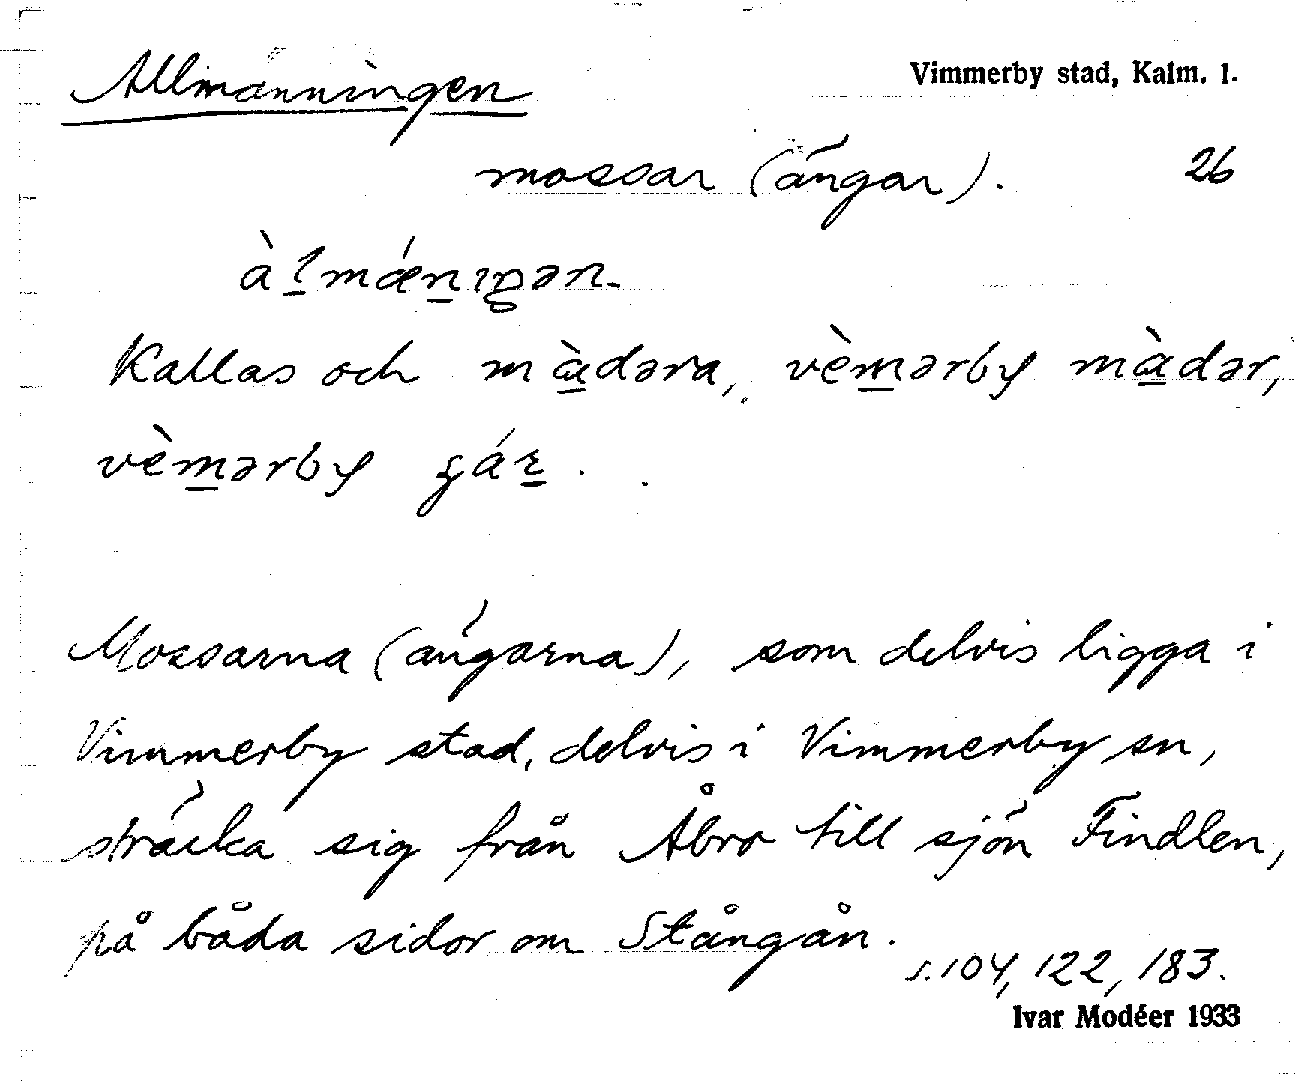 Allmänningen
Vimmerby stad, Kalm. l.
mossar (ängar). 26
àl̠mǽn̠ıŋən.
Kallas och mɑ̠̀dəra, vèm̠ərby mɑ̠̀dər,
vèm̠ərby
Mossarna (ängarna), som delvis ligga i
Vimmerby stad, delvis i Vimmerby sn,
sträcka sig från Åbro till sjön Findlen,
på båda sidor om Stångån.
s. 104, 122, 183.
Ivar Modéer 1933